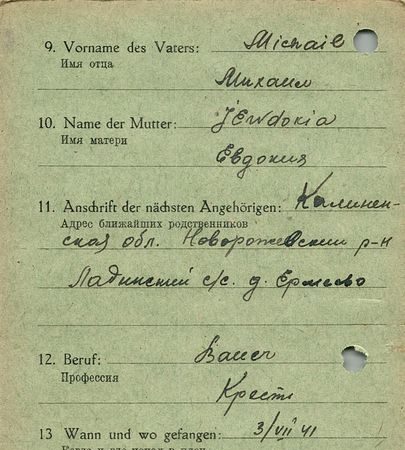 9. Vorname des Vaters: Michail
Имя отца
Михаил
10. Name der Mutter: JEwdokia
Имя матери
Евдокия
11. Anschrift der nächsten Angehörigen: Калинен-
Адрес ближайших родственников
ская обл. Новоржевский р-н
Ладинский с/с. д. Ермево
12. Beruf: Bauer
Профессия
Крест
13 Wann und wo gefangen: 3/VII 41